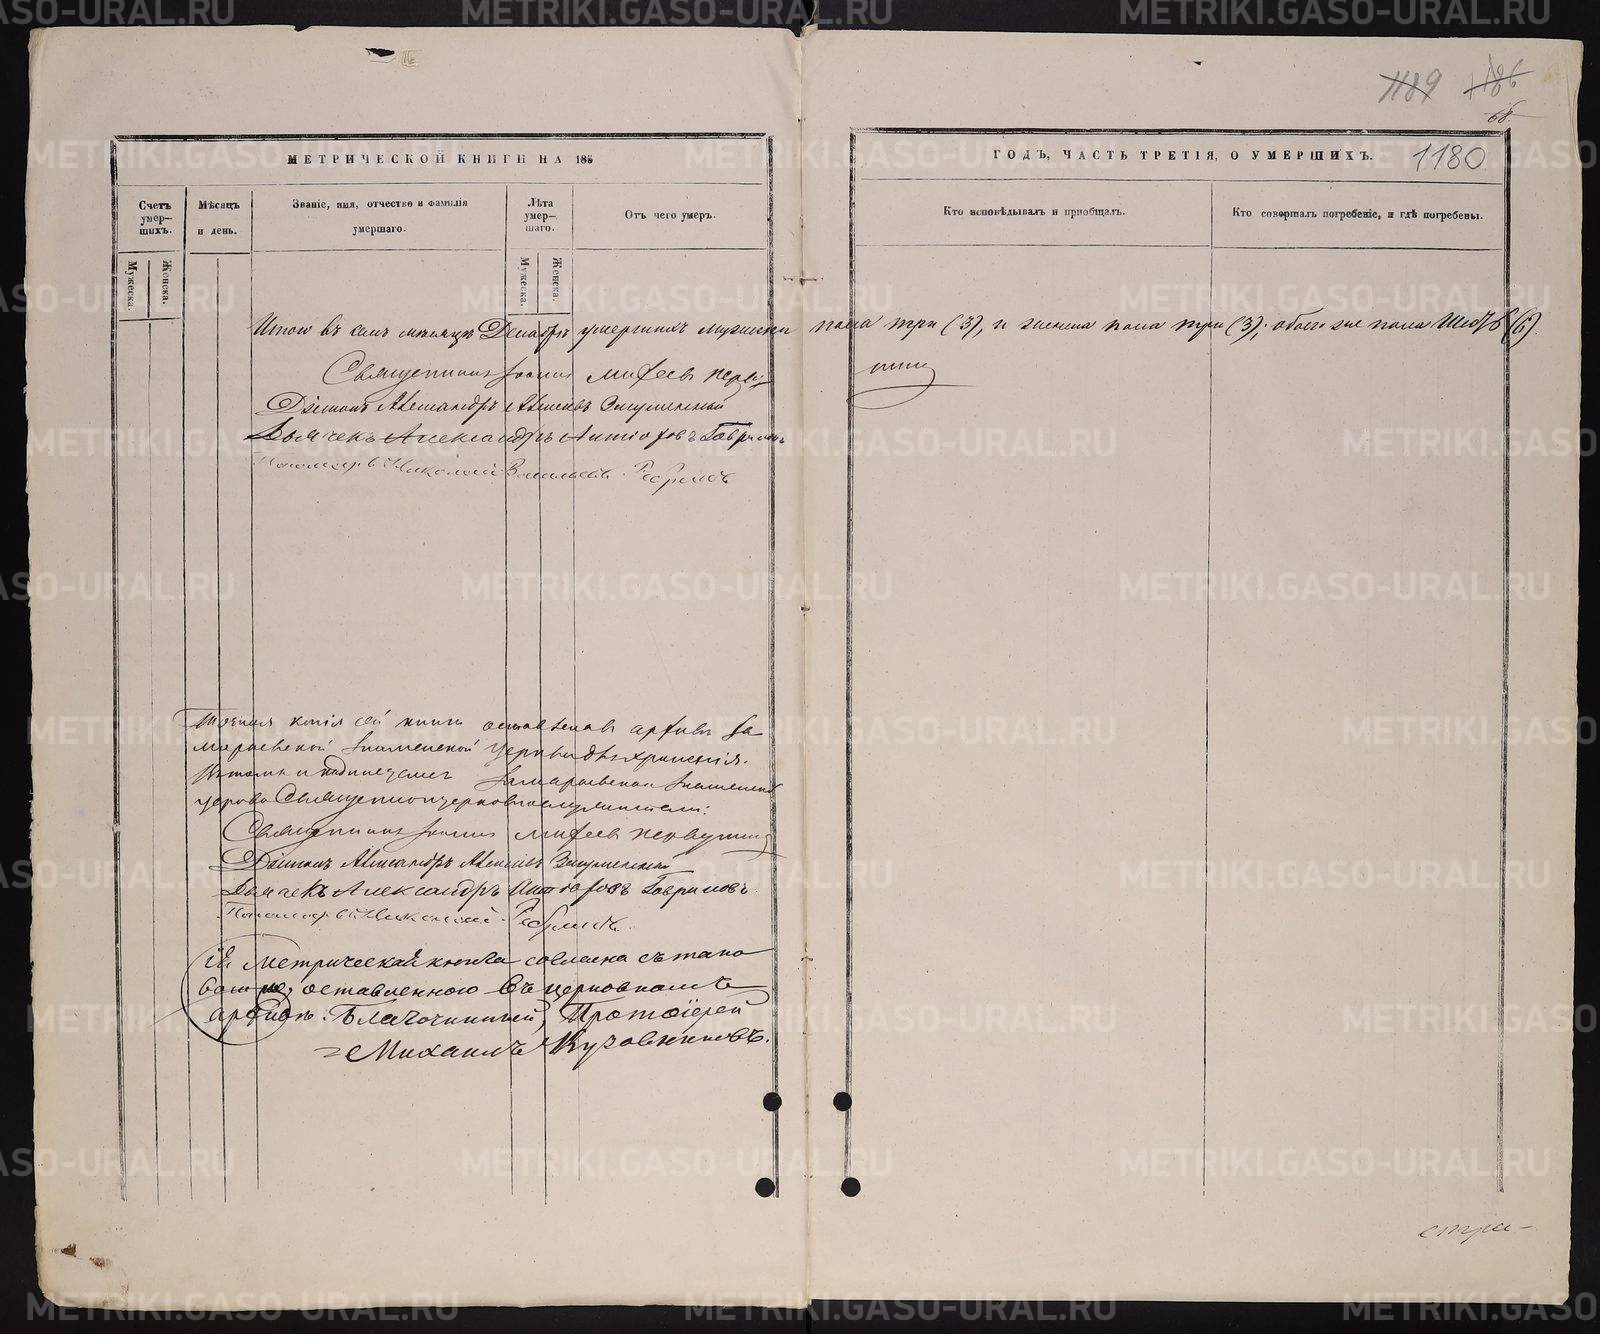 1189 1186
68
МЕТРИЧЕСКОЙ КНИГИ НА 185
ГОДЪ, ЧАСТЬ ТРЕТІЯ, О УМЕРШИХЪ.
1180
Счетъ умер-шихъ.
Мужеска.
Женска.
Мѣсяцъ и день.
Званіе, имя, отчество и фамилія умершаго.
Лѣта умер-шаго.
Мужеска.
Женска.
Отъ чего умеръ.
Кто исповѣдывалъ и пріобщалъ.
Кто совершалъ погребеніе, и гдѣ погребены.
Итого въ семъ мѣсяцѣ Декабрѣ умершихъ мужеска пола три (3), и женска пола три (3); обоего же пола шесть (6).
Священникъ Іоаннъ Мифеевъ Перву-
шинъ
Діаконъ Александръ Алексѣевъ
Дьячекъ Александръ Антіоховъ Гавриловъ
Пономарь Николай Васильевъ
Точная копія сей книги оставлена въ архивѣ За
мараевской Знаменской церкви для храненія.
Въ томъ и подписуемся Замараевской Знаменской
церкви Священноцерковнослужители:
Священникъ Іоаннъ Мифеевъ Первушинъ
Діаконъ Александръ Алексѣевъ
Дьячекъ Александръ Антіоховъ Гавриловъ.
Пономарь Николай
Сія метрическая книга согласна съ тако
вою же, оставленною въ церковномъ
архивѣ. Благочинный, Протоіерей
Михаилъ Кузовниковъ.
METRIKI.GASO-URAL.RU